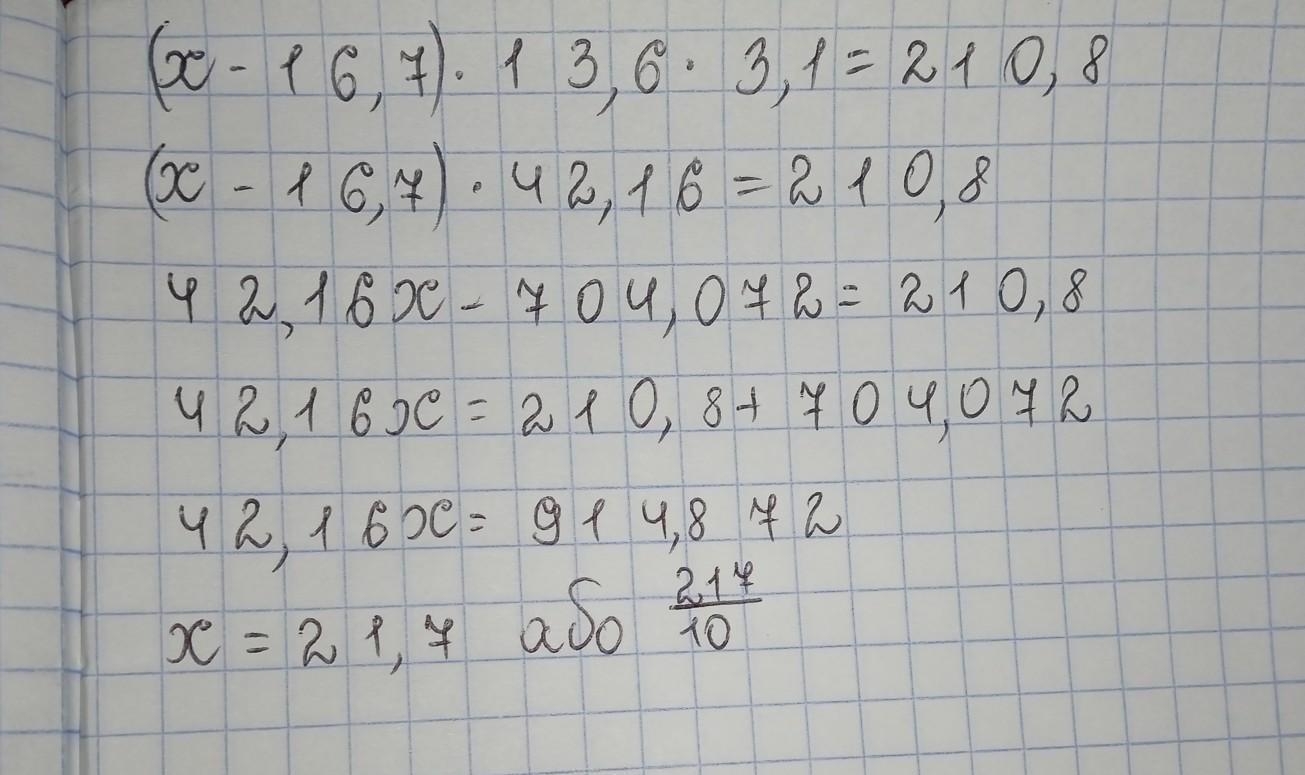 (x - 16,7) · 13,6 · 3,1 = 210,8
(x - 16,7) · 42,16 = 210,8
42,16x - 704,072 = 210,8
42,16x = 210,8 + 704,072
42,16x = 914,872
x = 21,7 або 217/10